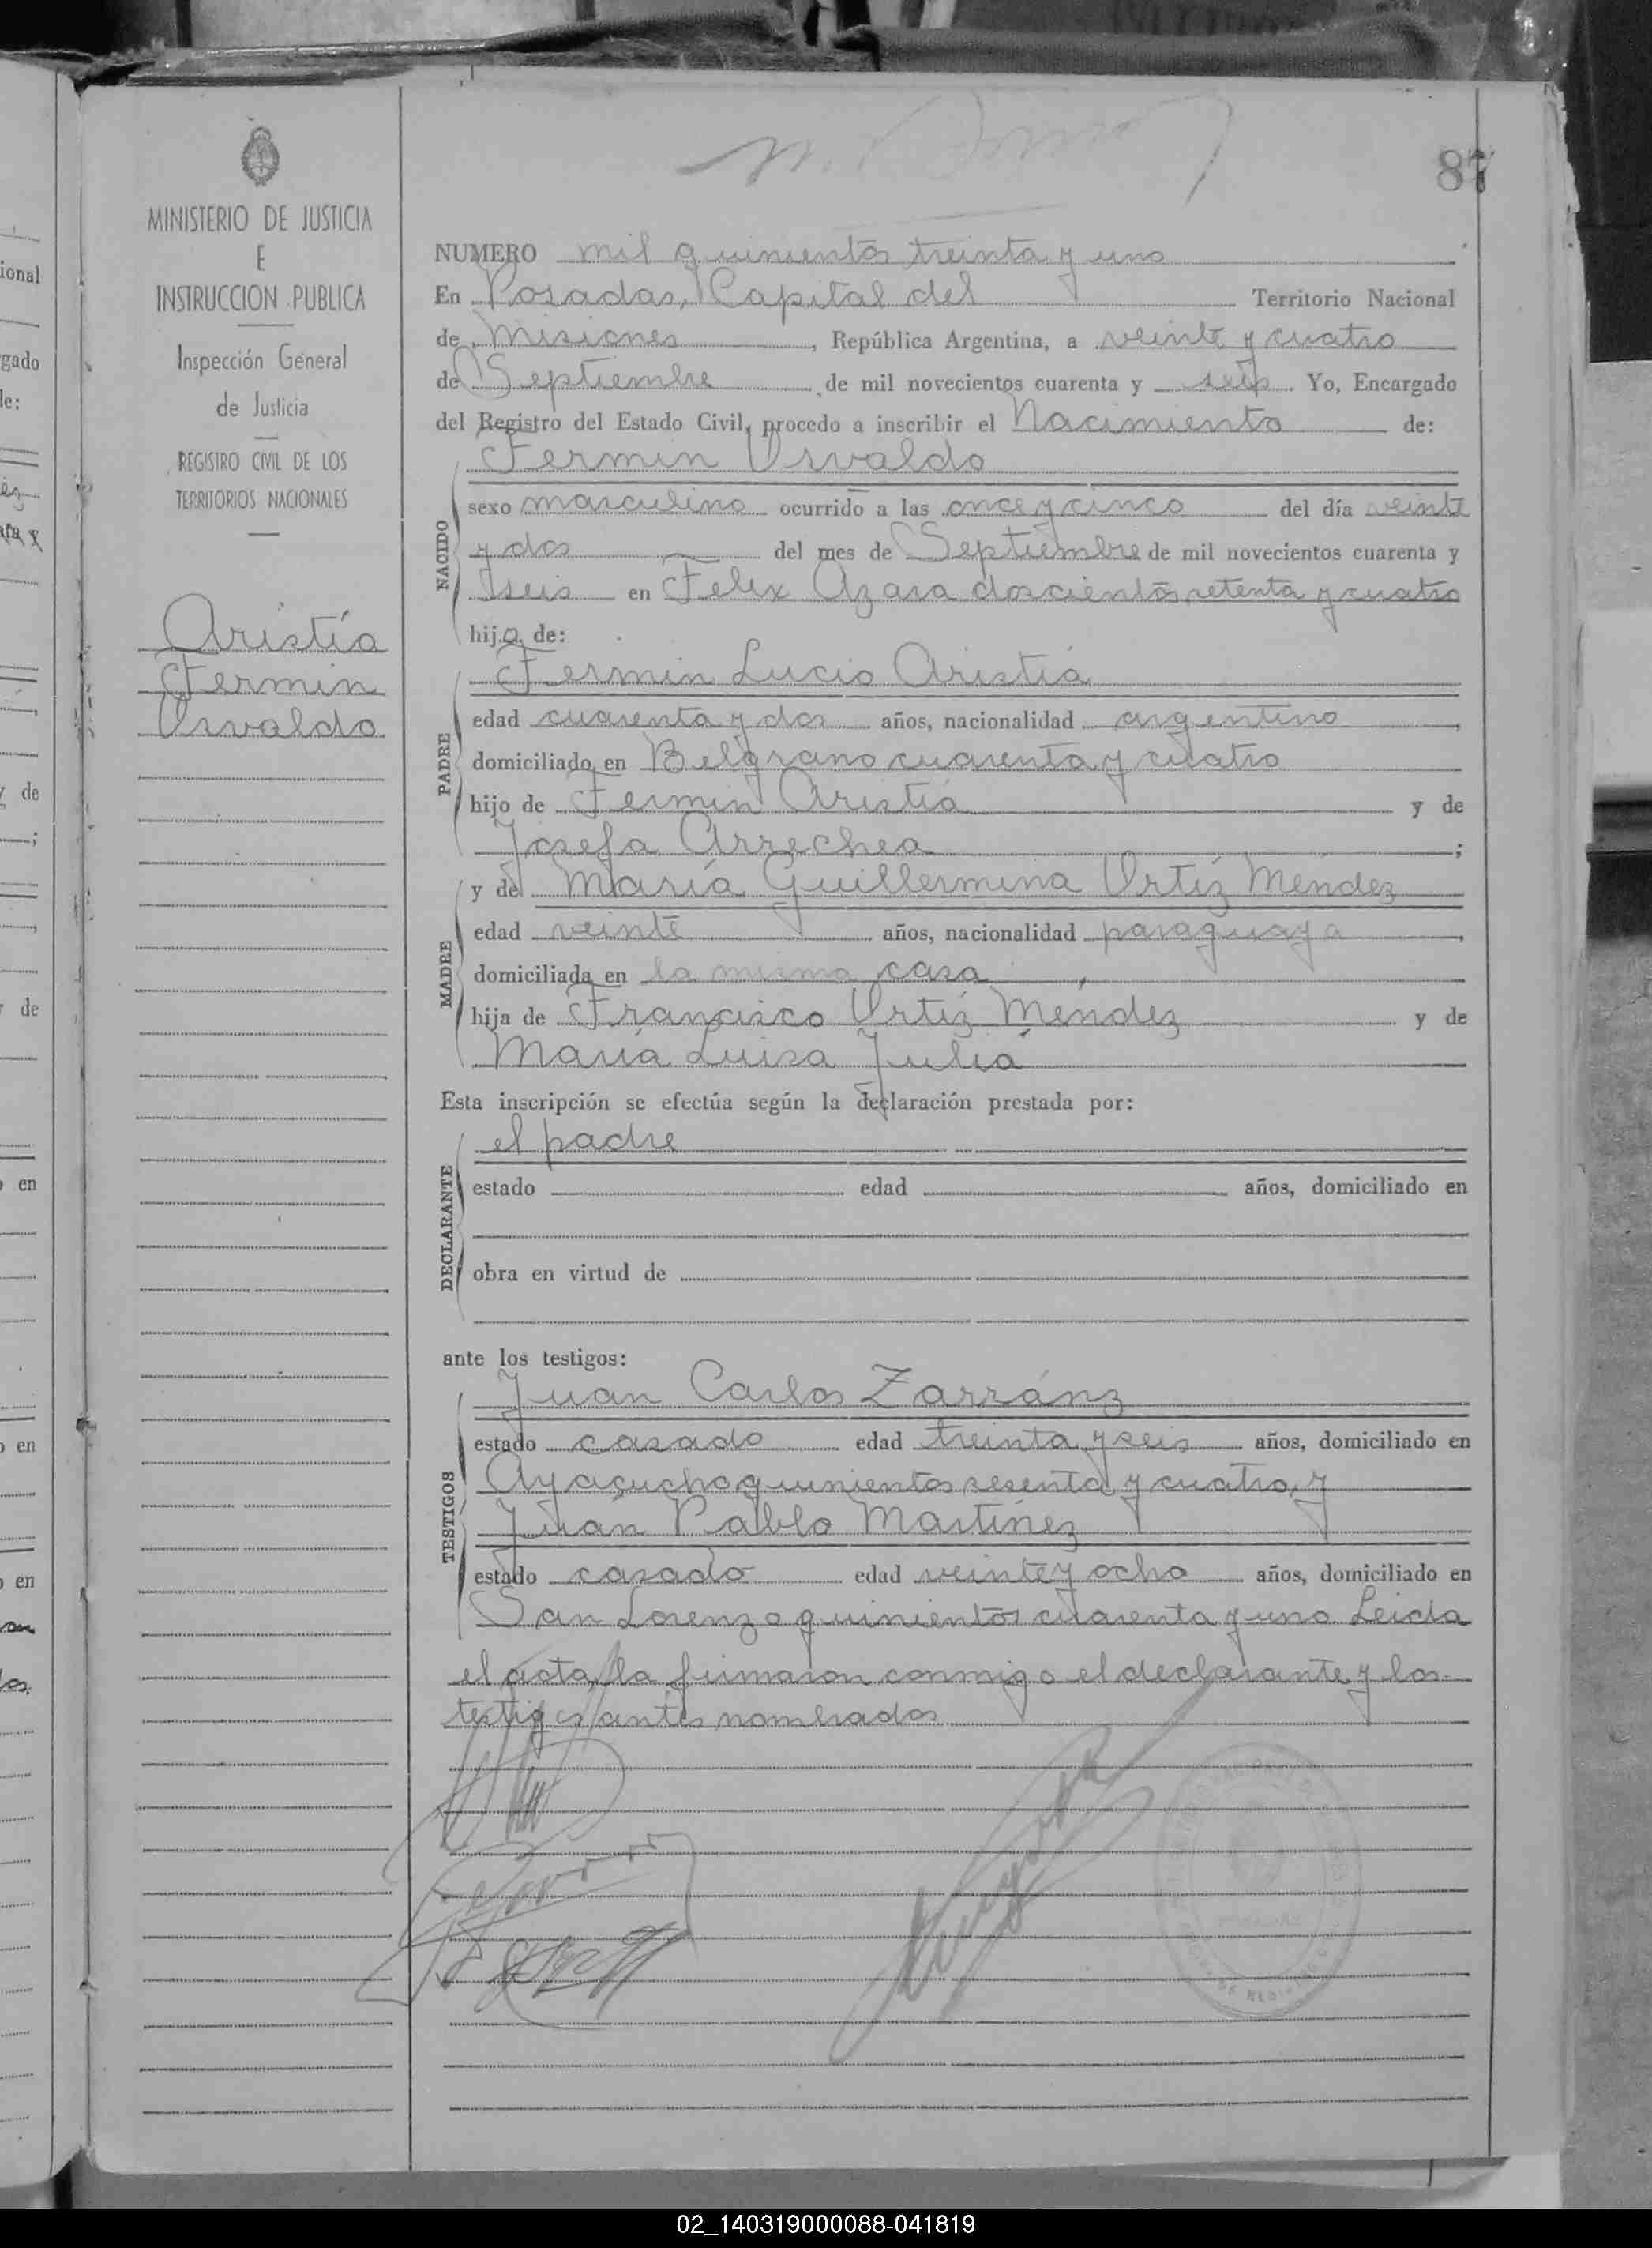 87
MINISTERIO DE JUSTICIA
E
INSTRUCCION PUBLICA
Inspección General
de Justicia
REGISTRO CIVIL DE LOS
TERRITORIOS NACIONALES
Aristía
Fermin
Osvaldo
NUMERO mil quinientos treinta y uno
En Posadas, Capital del Territorio Nacional
de Misiones, República Argentina, a veinte y cuatro
de Septiembre de mil novecientos cuarenta y seis. Yo, Encargado
del Registro del Estado Civil, procedo a inscribir el Nacimiento de:
Fermin Osvaldo
NACIDO
sexo masculino ocurrido a las once y cinco del día veinte
y dos del mes de Septiembre de mil novecientos cuarenta y
seis en Felix Azara doscientos setenta y cuatro
hijo de:
Fermin Lucio Aristía
PADRE
edad cuarenta y dos años, nacionalidad argentino,
domiciliado en Belgrano cuarenta y cuatro
hijo de Fermin Aristía y de
Josefa Arrechea;
y de María Guillermina Ortíz Méndez
MADRE
edad veinte años, nacionalidad paraguaya,
domiciliada en la misma casa,
hija de Francisco Ortíz Méndez y de
María Luisa Juliá
Esta inscripción se efectúa según la declaración prestada por:
el padre
DECLARANTE
estado edad años, domiciliado en
obra en virtud de
ante los testigos:
Juan Carlos Zarránz
TESTIGOS
estado casado edad treinta y seis años, domiciliado en
Ayacucho quinientos sesenta y cuatro, y
Juan Pablo Martínez
estado casado edad veinte y ocho años, domiciliado en
San Lorenzo quinientos cuarenta y uno Leida
el acta, la firmaron conmigo el declarante y los
testigos antes nombrados
ional
gado
le:
y de
y de
en
en
en
02_140319000088-041819